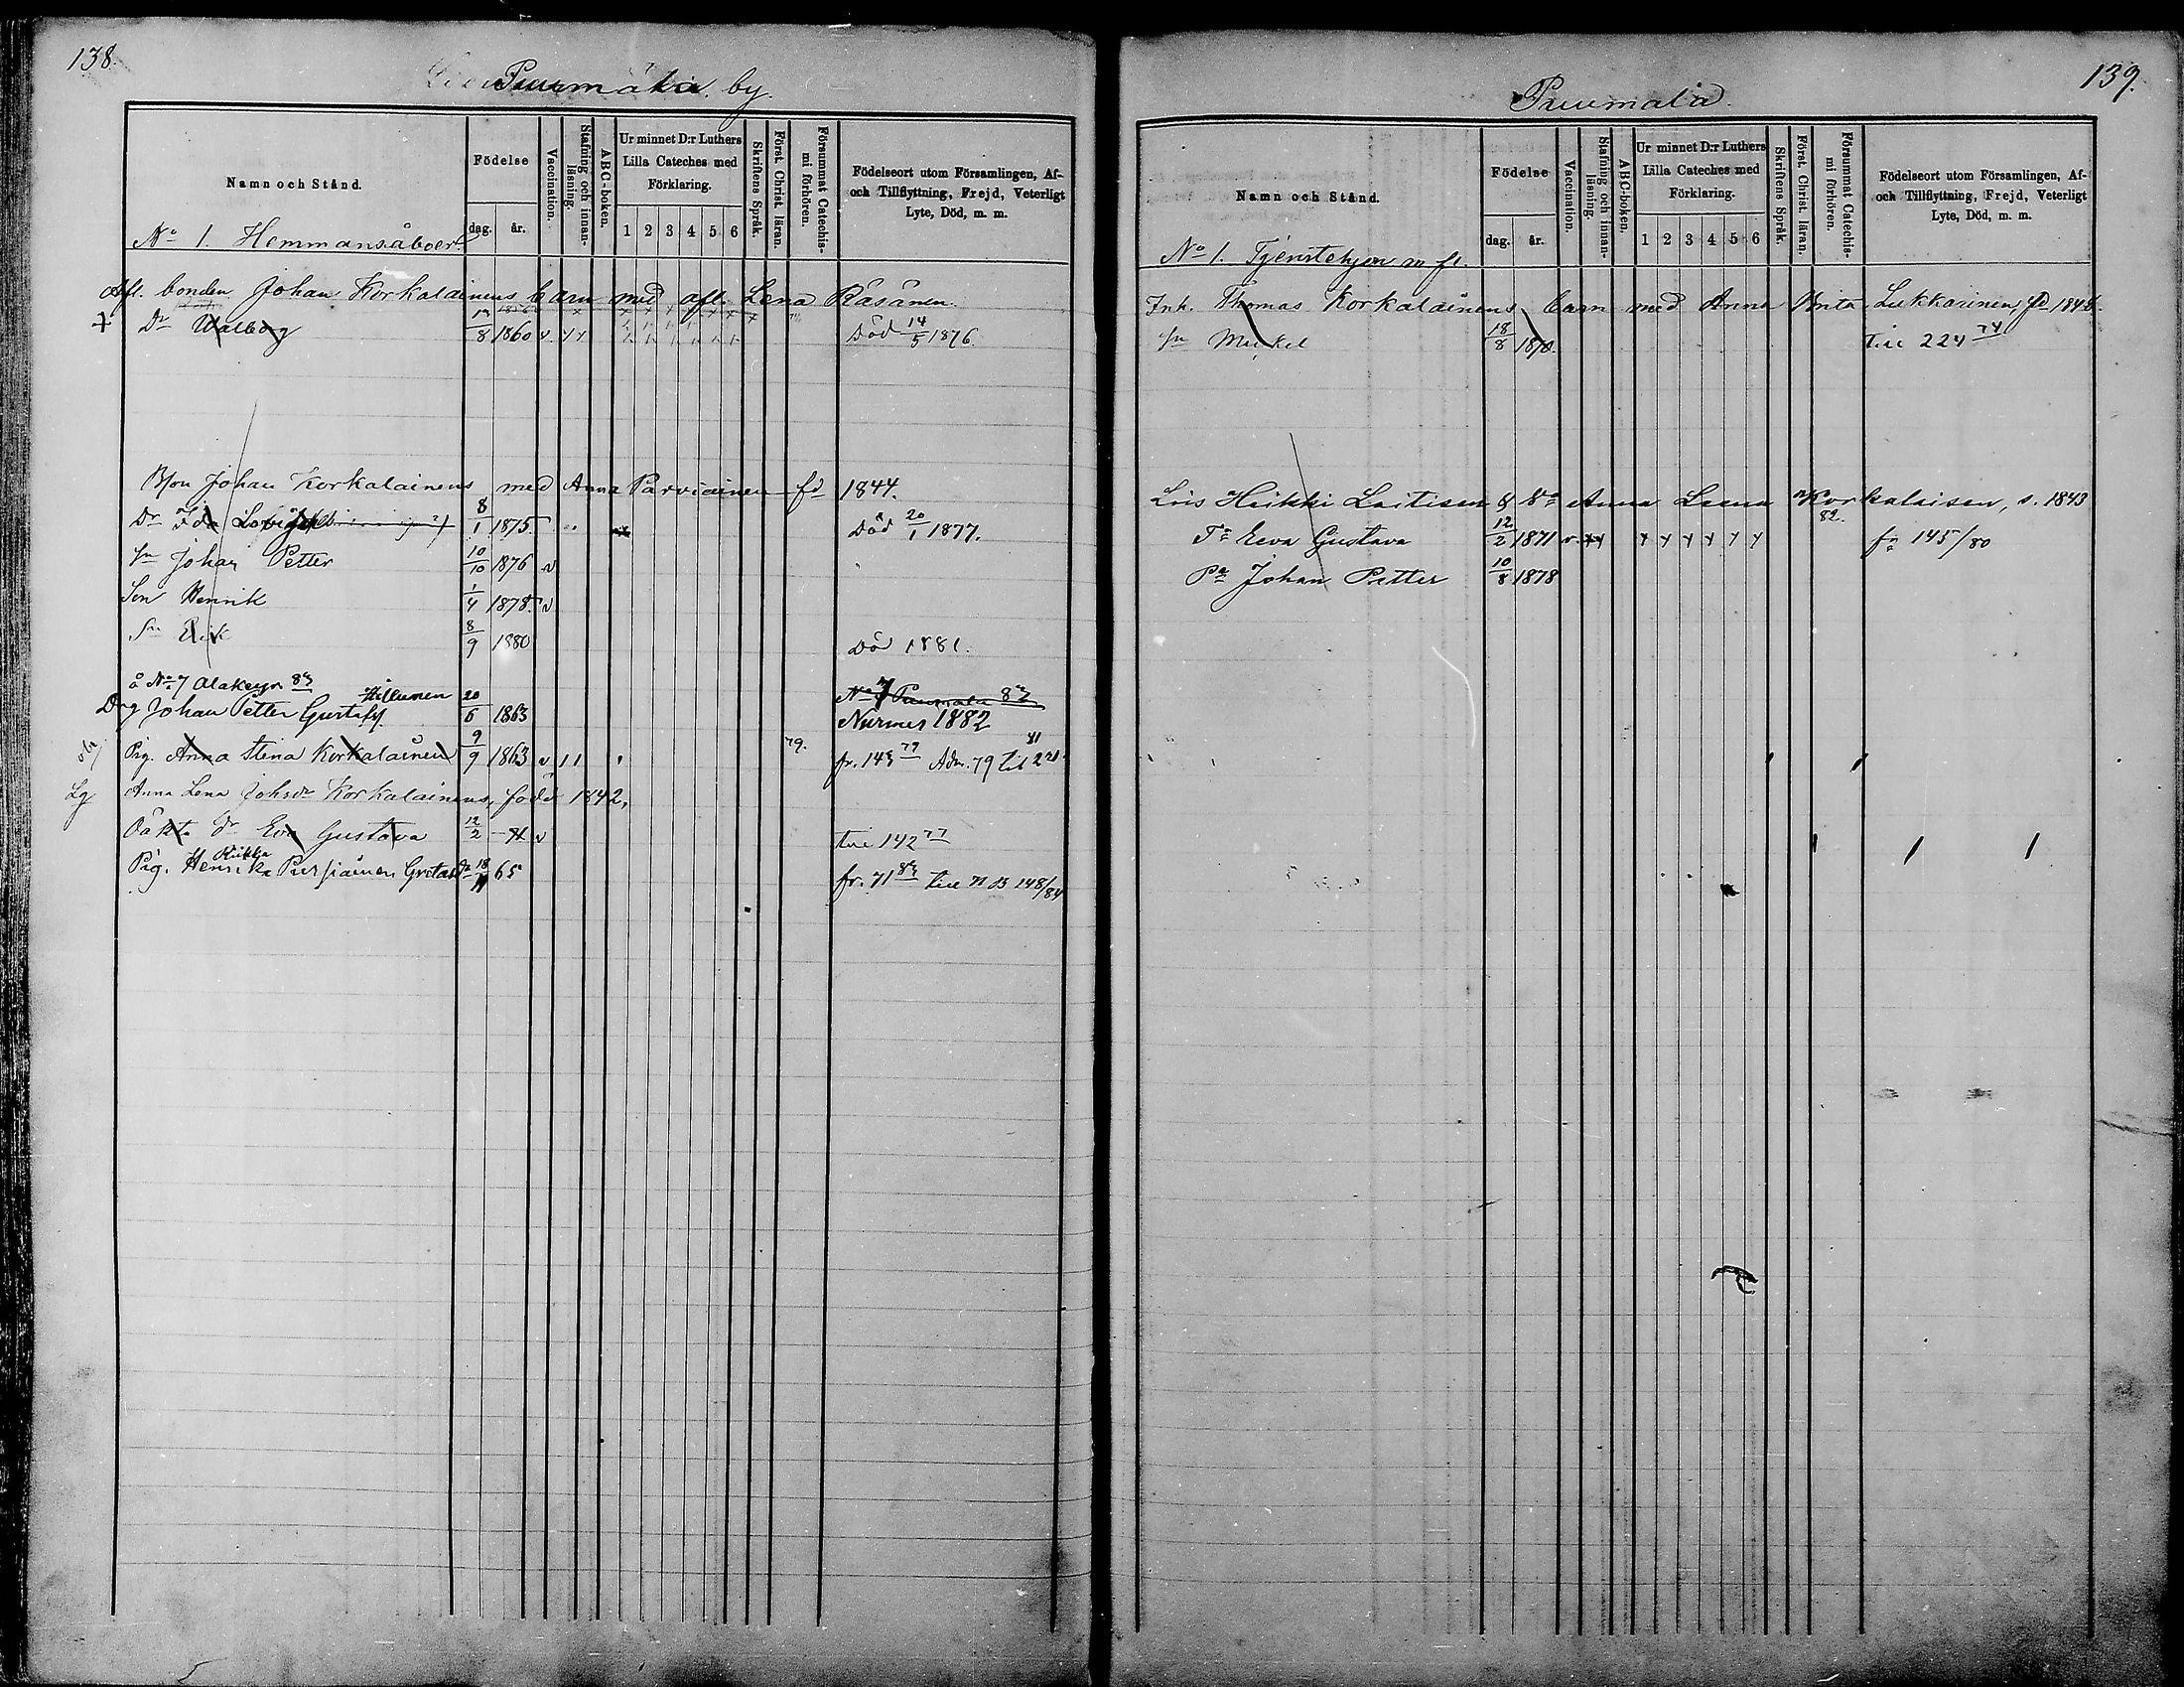 138.
Puumala by.
Namn och Stånd.
Födelse
dag. år.
Vaccination.
Stafning och innan-läsning.
ABC-boken.
Ur minnet D:r Luthers Lilla Cateches med Förklaring.
1 2 3 4 5 6
Skriftens Språk.
Först. Christ. läran.
Försummat Catechis-mi förhören.
Födelseort utom Församlingen, Af-
och Tillflyttning, Frejd, Veterligt
Lyte, Död, m. m.
No 1. Hemmansåboer
Afl. bonden Johan Korkalainens barn med afl. Lena Räsänen.
+ Dr Walborg 8 1860 v. Död 14/5 1876.
Bon Johan Korkalainens med Anna Parviainen fd 1844.
Dr Ida 8/1 1875. Död 20/1 1877.
Sn Johan Petter 10/10 1876 v
Son Henrik 1/4 1878. v
Sn Erik 8/9 1880 Död 1881.
å No 7 83
No 7 Puumala 83
Drg Johan Petter Gustafs. 20/6 1863 Nurmes 1882
Pig. Anna Stina Korkalainen 9/9 1863 v 1 1 79. fr. 143 79 Adm. 79
Lg Anna Lena Johsdr Korkalainens, född 1842,
Oäkta dr Eva Gustava 12/2 71 v till 142 77
Pig. Henrika 65 fr. 71 84
139.
Puumala.
Namn och Stånd.
Födelse
dag. år.
Vaccination.
Stafning och innan-läsning.
ABC-boken.
Ur minnet D:r Luthers Lilla Cateches med Förklaring.
1 2 3 4 5 6
Skriftens Språk.
Först. Christ. läran.
Försummat Catechis-mi förhören.
Födelseort utom Församlingen, Af-
och Tillflyttning, Frejd, Veterligt
Lyte, Död, m. m.
No 1. Tjenstehjon m fl.
Inh. Thomas Korkalainens barn med Anna Brita Lukkarinen, fd 1848.
Sn Mickel 18/8 1870. till 224 74
Lois Heikki Laitisen & Va Anna Leena Korkalaisen, s. 1843
82.
Tr Eeva Gustava 12/2 1871 v fr 145/80
Pa Johan Petter 10/8 1878